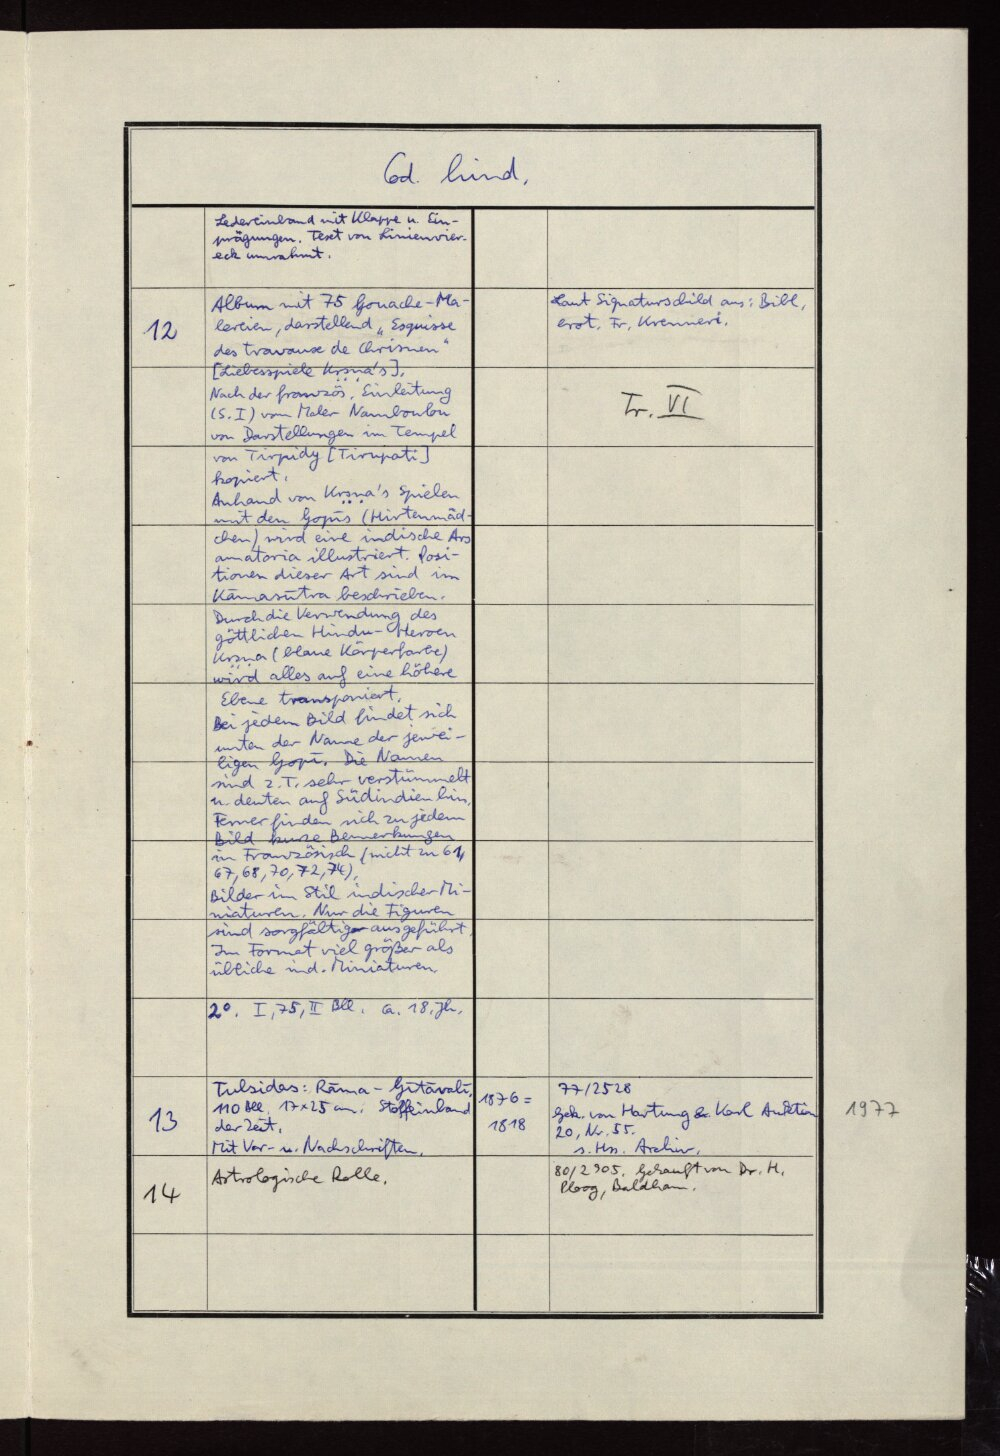 Cod. hind.
Ledereinband mit Klappe u. Ein-
prägungen. Text von Linienvier-
eck umrahmt.
12
Album mit 75 Gouache-Ma-
lereien, darstellend „Esquisse
des travause de Chrisnen"
[Liebesspiele Kṛṣṇa's].
Nach der französ. Einleitung
(S. I) vom Maler Namboulou
von Darstellungen im Tempel
von Tirpidy [Tirupati]
kopiert.
Anhand von Kṛṣṇa's Spielen
mit den Gopīs (Hirtenmäd-
chen) wird eine indische Ars
amatoria illustriert. Posi-
tionen dieser Art sind im
Kāmasūtra beschrieben.
Durch die Verwendung des
göttlichen Hindu-Heroen
Kṛṣṇa (blaue Körperfarbe)
wird alles auf eine höhere
Ebene transponiert.
Bei jedem Bild findet sich
unten der Name der jewei-
ligen Gopī. Die Namen
sind z. T. sehr verstümmelt
u. deuten auf Südindien hin.
Ferner finden sich zu jedem
Bild kurze Bemerkungen
in Französisch (nicht zu 61,
67, 68, 70, 72, 74).
Bilder im Stil indischer Mi-
niaturen. Nur die Figuren
sind sorgfältig ausgeführt.
Im Format viel größer als
übliche ind. Miniaturen.
2°. I, 75, II Bll. ca. 18. Jh.
Laut Signaturschild aus: Bibl.
erot. Fr. Krenneri.
Tr. VI
13
Tulsidas: Rāma-Gītāvalī.
110 Bll. 17×25 cm. Stoffeinband
der Zeit.
Mit Vor- u. Nachschriften.
1876 =
1818
77/2528
Gek. von Hartung & Karl Auktion
20, Nr. 55.
s. Hss. Archiv.
1977
14
Astrologische Rolle.
80/2905. Gekauft von Dr. H.
Ploog, Baldham.